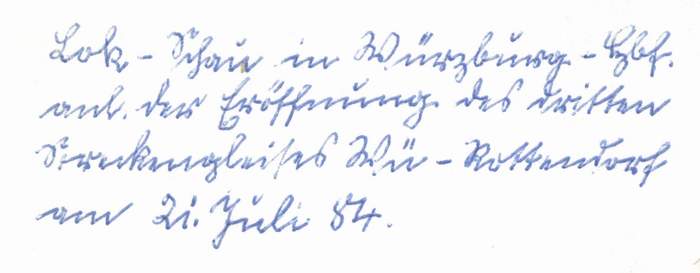 Lok-Schau in Würzburg-Hbf.
anl. der Eröffnung des dritten
Streckengleises Wü-Rottendorf
am 21. Juli 84.